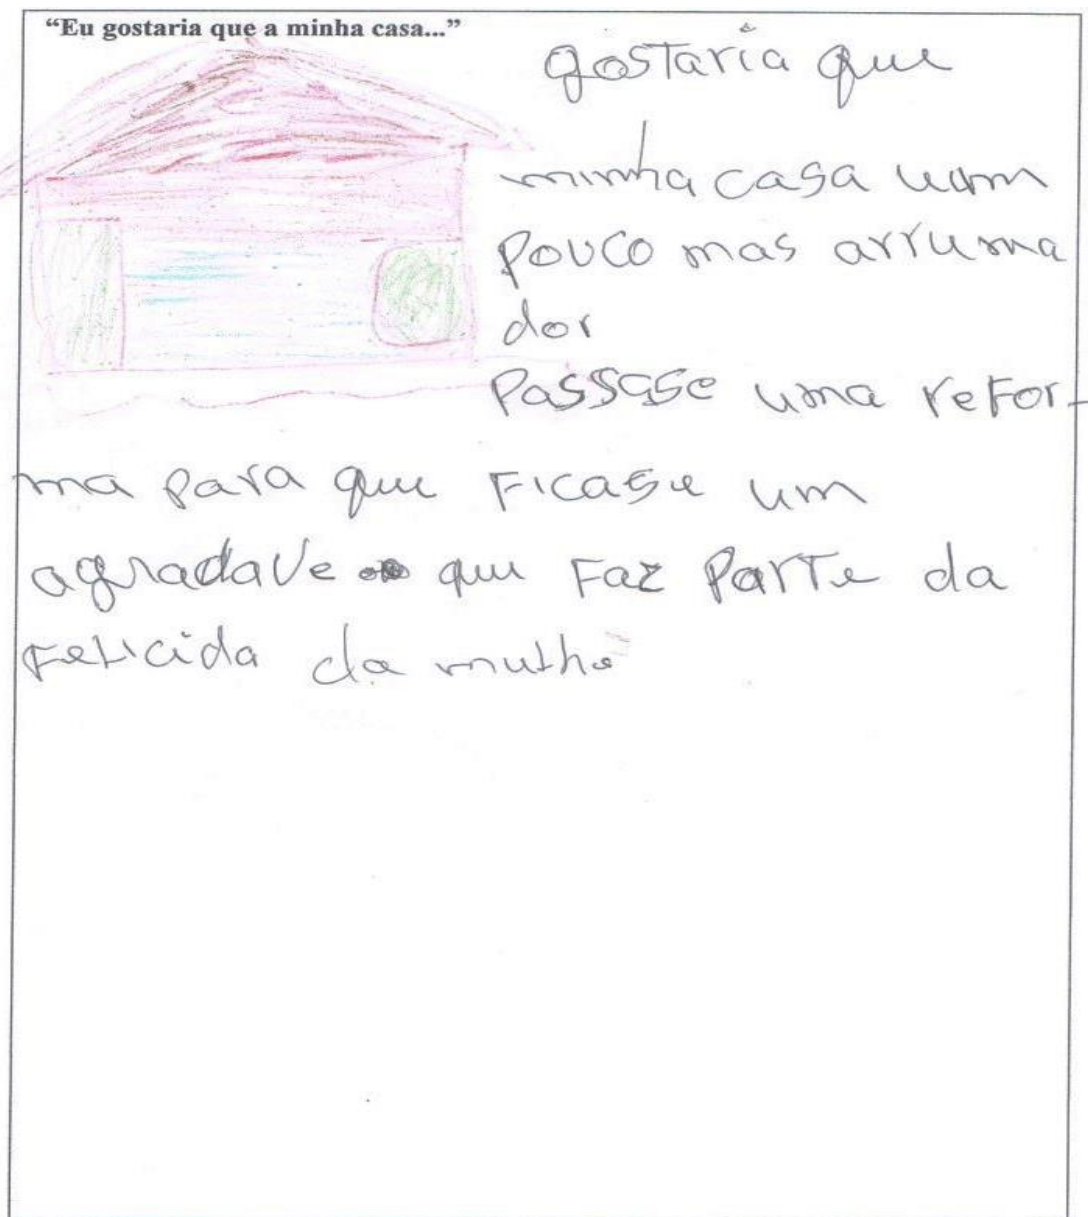 “Eu gostaria que a minha casa...”
gostaria que
minha casa uum
pouco mas arruma
dor
Passase uma refor-
ma para que Ficase um
agradave que Faz Parte da
Felicida da mulhe